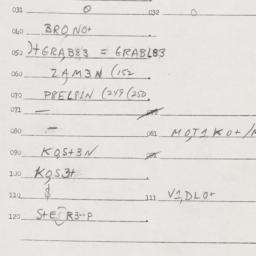 031 0 032 0
040 BRO,NO+
052 )+GRAB83 = GRABL83
060 ZAM3N (152
070 PRELPIN (249 (250
071 —
080 — 081 MOT1 KO+/M
090 KQS+3N
100 KQS3+
110 111 V1,DLO+
120 S+E R3--P